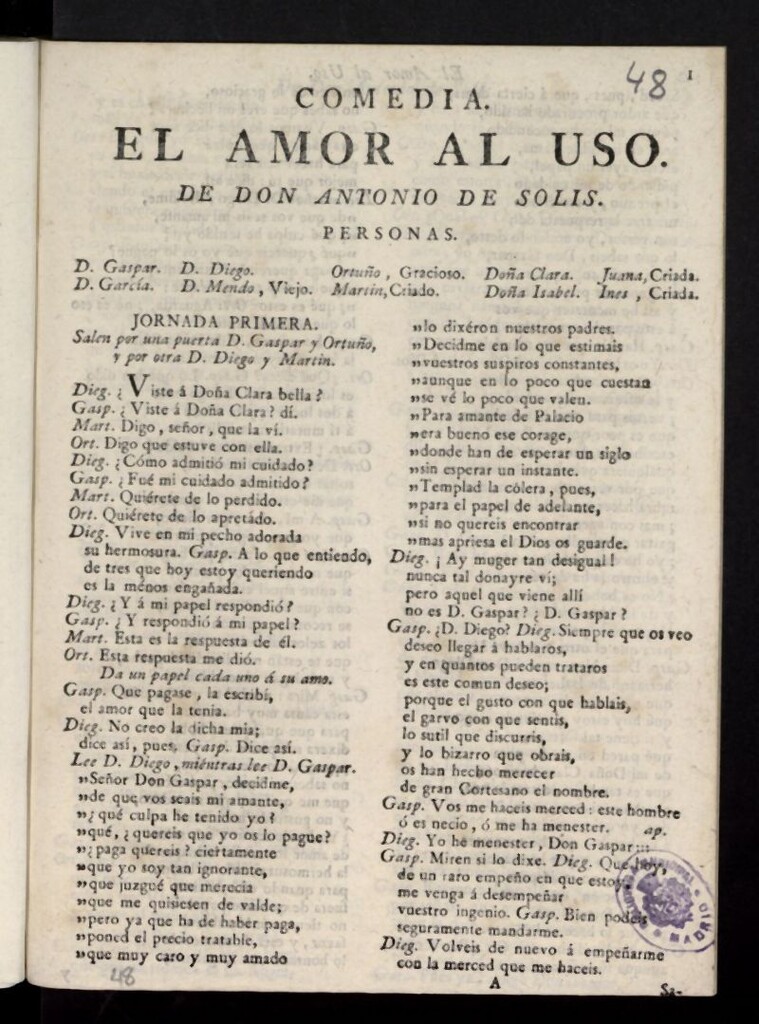 48
1
COMEDIA.
EL AMOR AL USO.
DE DON ANTONIO DE SOLIS.
PERSONAS.
D. Gaspar. D. Diego. Ortuño, Gracioso. Doña Clara. Juana, Criada.
D. García. D. Mendo, Viejo. Martin, Criado. Doña Isabel. Ines, Criada.
JORNADA PRIMERA.
Salen por una puerta D. Gaspar y Ortuño,
y por otra D. Diego y Martin.
Dieg. ¿Viste á Doña Clara bella?
Gasp. ¿Viste á Doña Clara? dí.
Mart. Digo, señor, que la ví.
Ort. Digo que estuve con ella.
Dieg. ¿Cómo admitió mi cuidado?
Gasp. ¿Fué mi cuidado admitido?
Mart. Quiérete de lo perdido.
Ort. Quiérete de lo apretádo.
Dieg. Vive en mi pecho adorada
su hermosura. Gasp. A lo que entiendo,
de tres que hoy estoy queriendo
es la ménos engañada.
Dieg. ¿Y á mi papel respondió?
Gasp. ¿Y respondió á mi papel?
Mart. Esta es la respuesta de él.
Ort. Esta respuesta me dió.
Da un papel cada uno á su amo.
Gasp. Que pagase, la escribí,
el amor que la tenia.
Dieg. No creo la dicha mia;
dice así, pues. Gasp. Dice así.
Lee D. Diego, miéntras lee D. Gaspar.
"Señor Don Gaspar, decidme,
"de que vos seais mi amante,
"¿qué culpa he tenido yo?
"qué, ¿quereis que yo os lo pague?
"¿paga quereis? ciertamente
"que yo soy tan ignorante,
"que juzgué que merecia
"que me quisiesen de valde;
"pero ya que ha de haber paga,
"poned el precio tratable,
"que muy caro y muy amado
48
"lo dixéron nuestros padres.
"Decidme en lo que estimais
"vuestros suspiros constantes,
"aunque en lo poco que cuestan
"se vé lo poco que valen.
"Para amante de Palacio
"era bueno ese corage,
"donde han de esperar un siglo
"sin esperar un instante.
"Templad la cólera, pues,
"para el papel de adelante,
"si no quereis encontrar
"mas apriesa el Dios os guarde.
Dieg. ¡Ay muger tan desigual!
nunca tal donayre ví;
pero aquel que viene allí
no es D. Gaspar? ¿D. Gaspar?
Gasp. ¿D. Diego? Dieg. Siempre que os veo
deseo llegar á hablaros,
y en quantos pueden trataros
es este comun deseo;
porque el gusto con que hablais,
el garvo con que sentis,
lo sutil que discurris,
y lo bizarro que obrais,
os han hecho merecer
de gran Cortesano el nombre.
Gasp. Vos me haceis merced: este hombre
ó es necio, ó me ha menester. ap.
Dieg. Yo he menester, Don Gaspar:::
Gasp. Miren si lo dixe. Dieg. Que hoy,
de un raro empeño en que estoy
me venga á desempeñar
vuestro ingenio. Gasp. Bien podeis
seguramente mandarme.
Dieg. Volveis de nuevo á empeñarme
con la merced que me haceis.
A
Sa-